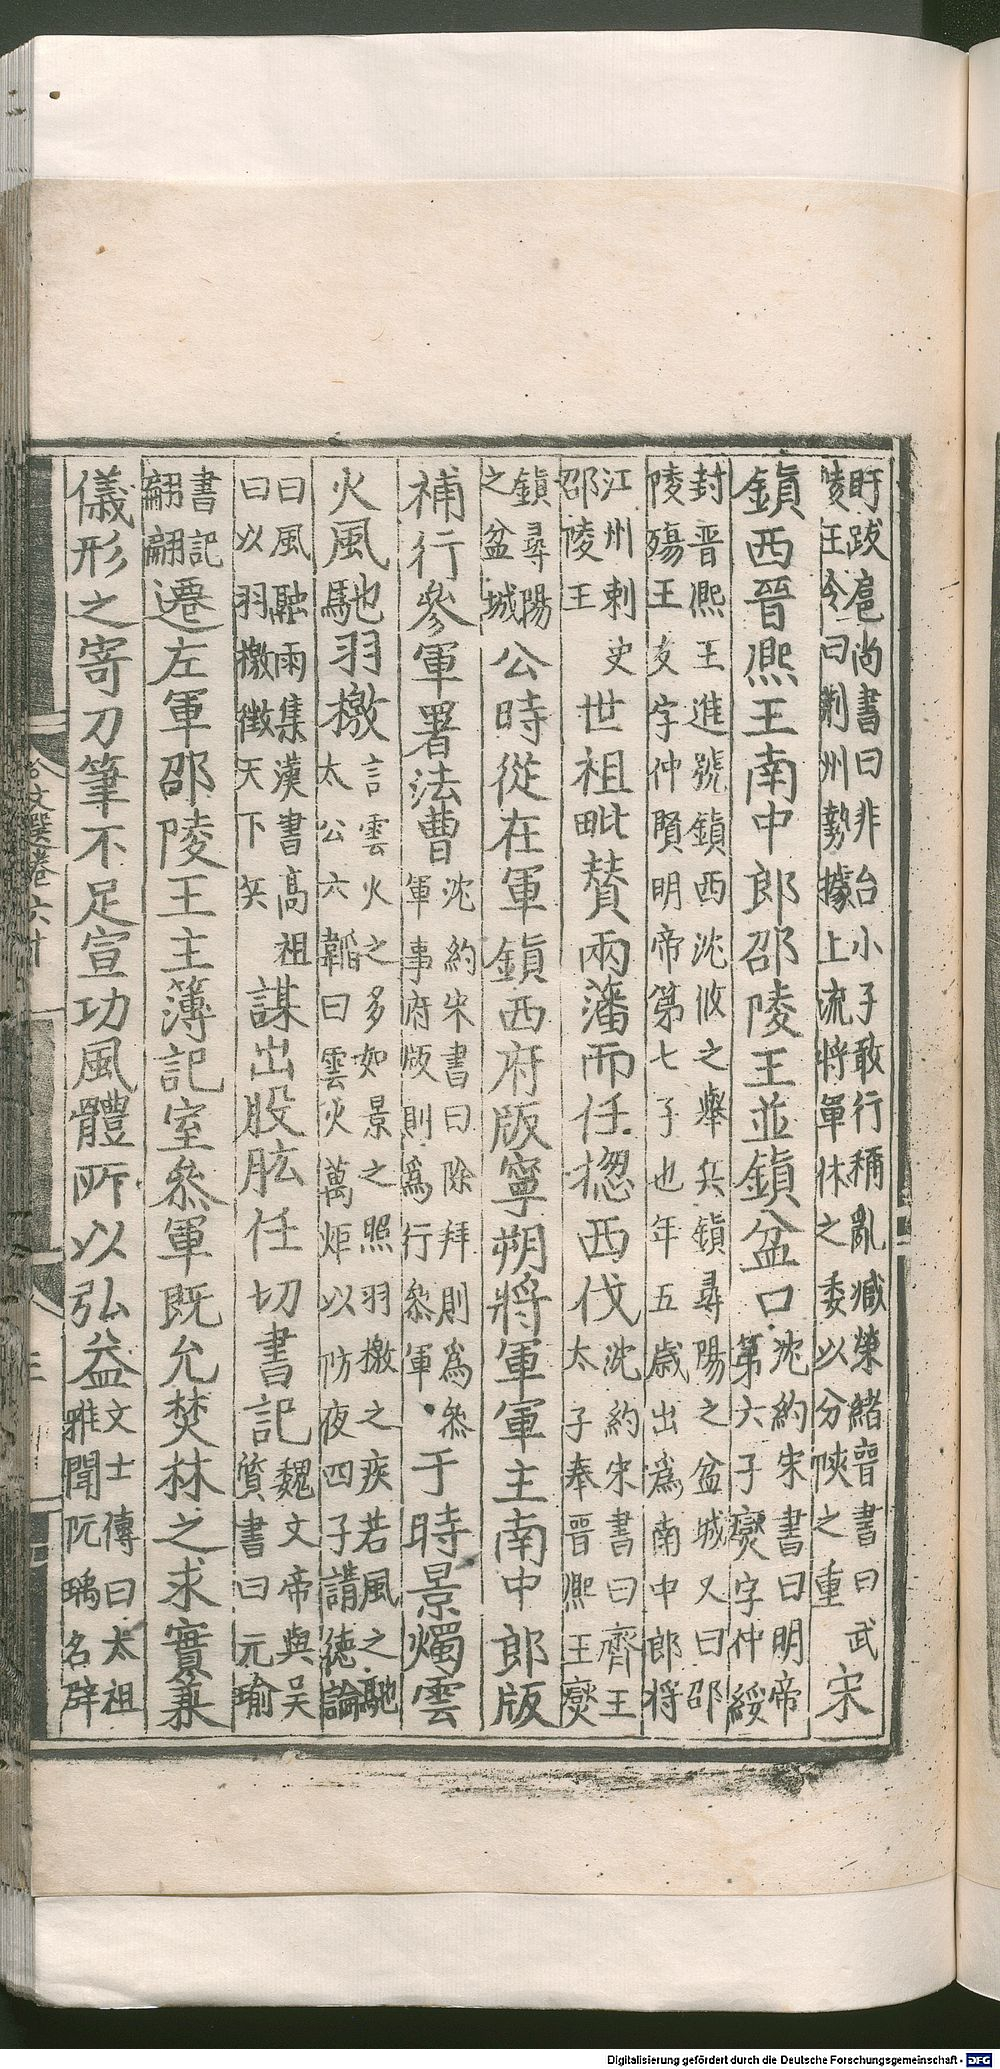 盱跋扈尚書曰非台小子敢行稱亂臧榮緒晉書曰武
陵王令曰荊州勢據上流將軍休之委以分陝之重
宋
鎮西晉熙王南中郎邵陵王並鎮盆口
沈約宋書曰明帝
第六子燮字仲綏
封晉熙王進號鎮西沈攸之舉兵鎮尋陽之盆城又曰邵
陵殤王友字仲賢明帝第七子也年五歲出為南中郎將
江州刺史
邵陵王
世祖毗贊兩藩而任揔西伐
沈約宋書曰齊王
太子奉晉熙王燮
鎮尋陽
之盆城
公時從在軍鎮西府版寧朔將軍軍主南中郎版
補行參軍署法曹
沈約宋書曰除拜則為叅
軍事府版則為行叅軍
于時景燭雲
火風馳羽檄
言雲火之多如景之照羽檄之疾若風之馳
太公六韜曰雲火萬炬以防夜四子講德論
曰風融雨集漢書高祖
曰以羽檄徵天下兵
謀出股肱任切書記
魏文帝與吳
質書曰元瑜
書記
翩翩
遷左軍邵陵王主簿記室叅軍既允焚林之求實兼
儀形之寄刀筆不足宣功風體所以弘益
文士傳曰太祖
雅聞阮瑀名辟
文選卷六十
Digitalisierung gefördert durch die Deutsche Forschungsgemeinschaft - DFG